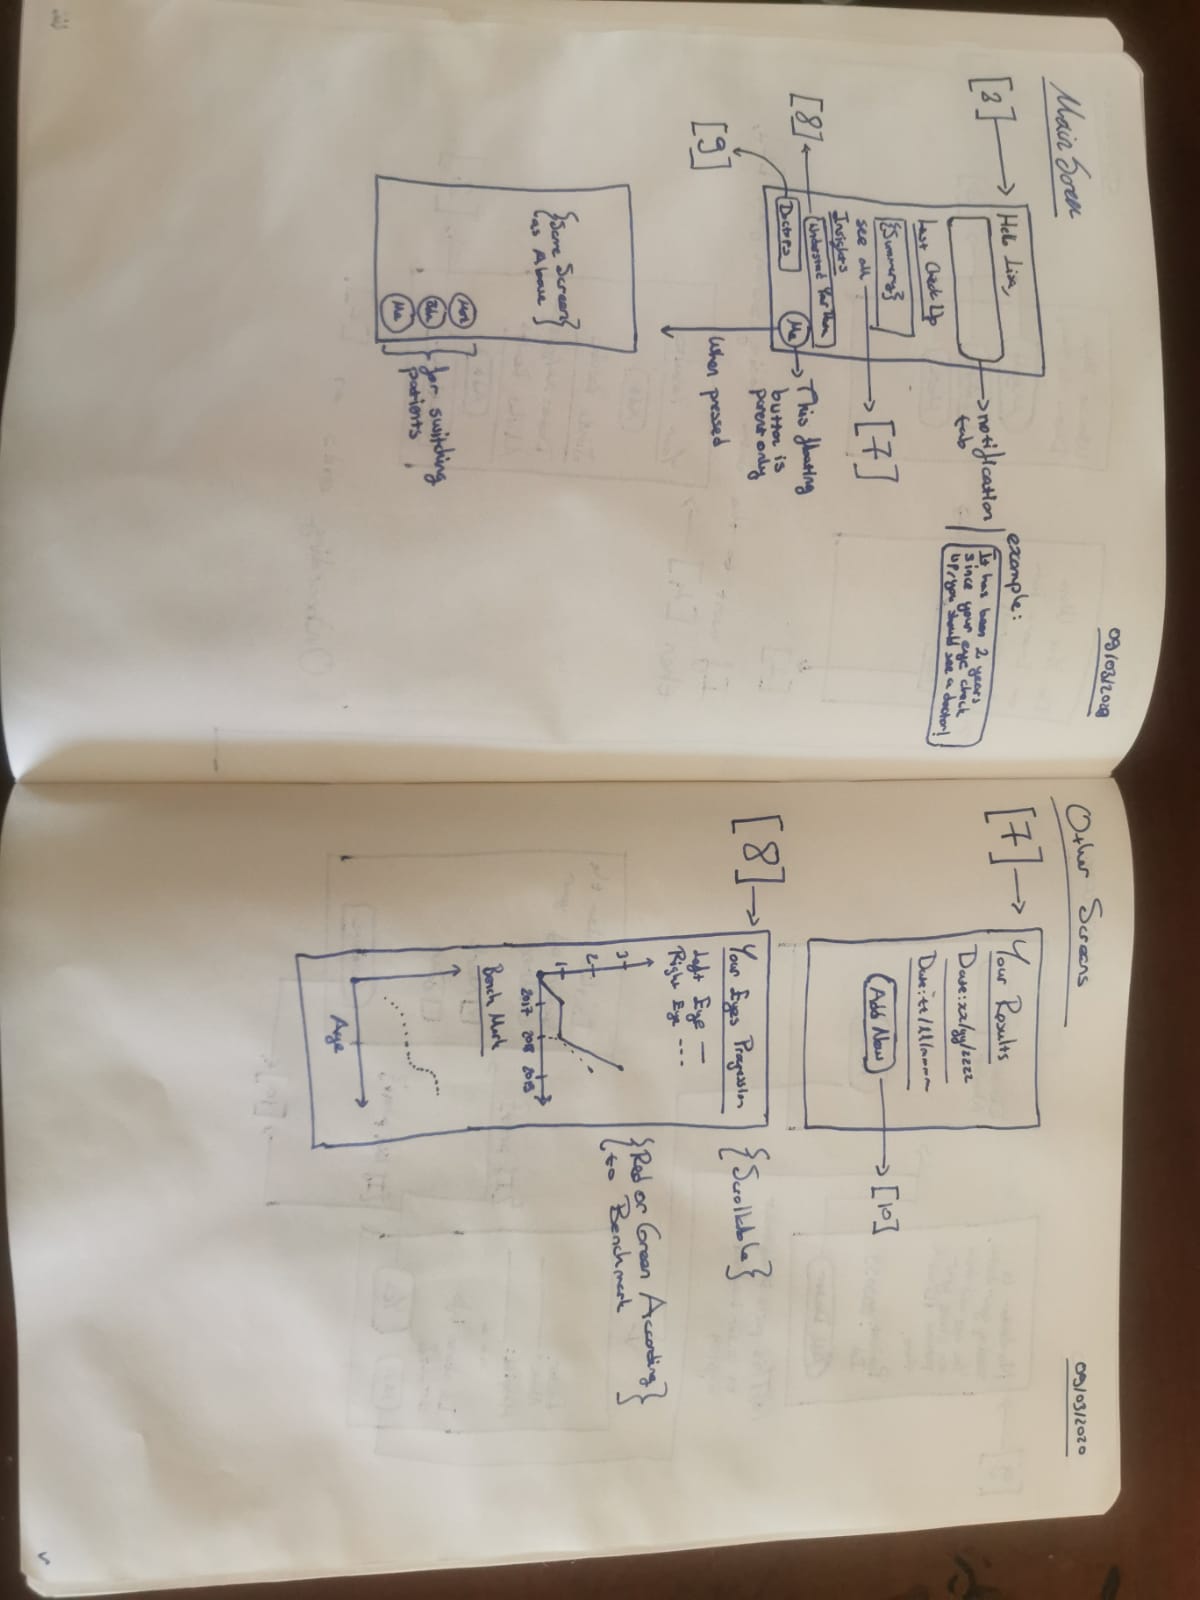 Main Screen
09/03/2020
[3]
Hello Lisa,
notification
tab
example:
It has been 2 years
since your eye check
up, you should see a doctor!
Last Check Up
{Summary}
see all
[7]
Insights
[8]
Understand Your Own
Doctors
[9]
Me
This floating
button is
parent only
When pressed
{Same Screen
as Above}
Me
for switching
patients
Other Screens
09/03/2020
[7]
Your Results
Date: xx/yy/zzzz
Add New
[10]
[8]
Your Eyes Progression
Left Eye —
Right Eye ---
{Scrollable}
3
2
1
2017 2018 2019
{Red or Green According
to Benchmark}
Bench Mark
Age